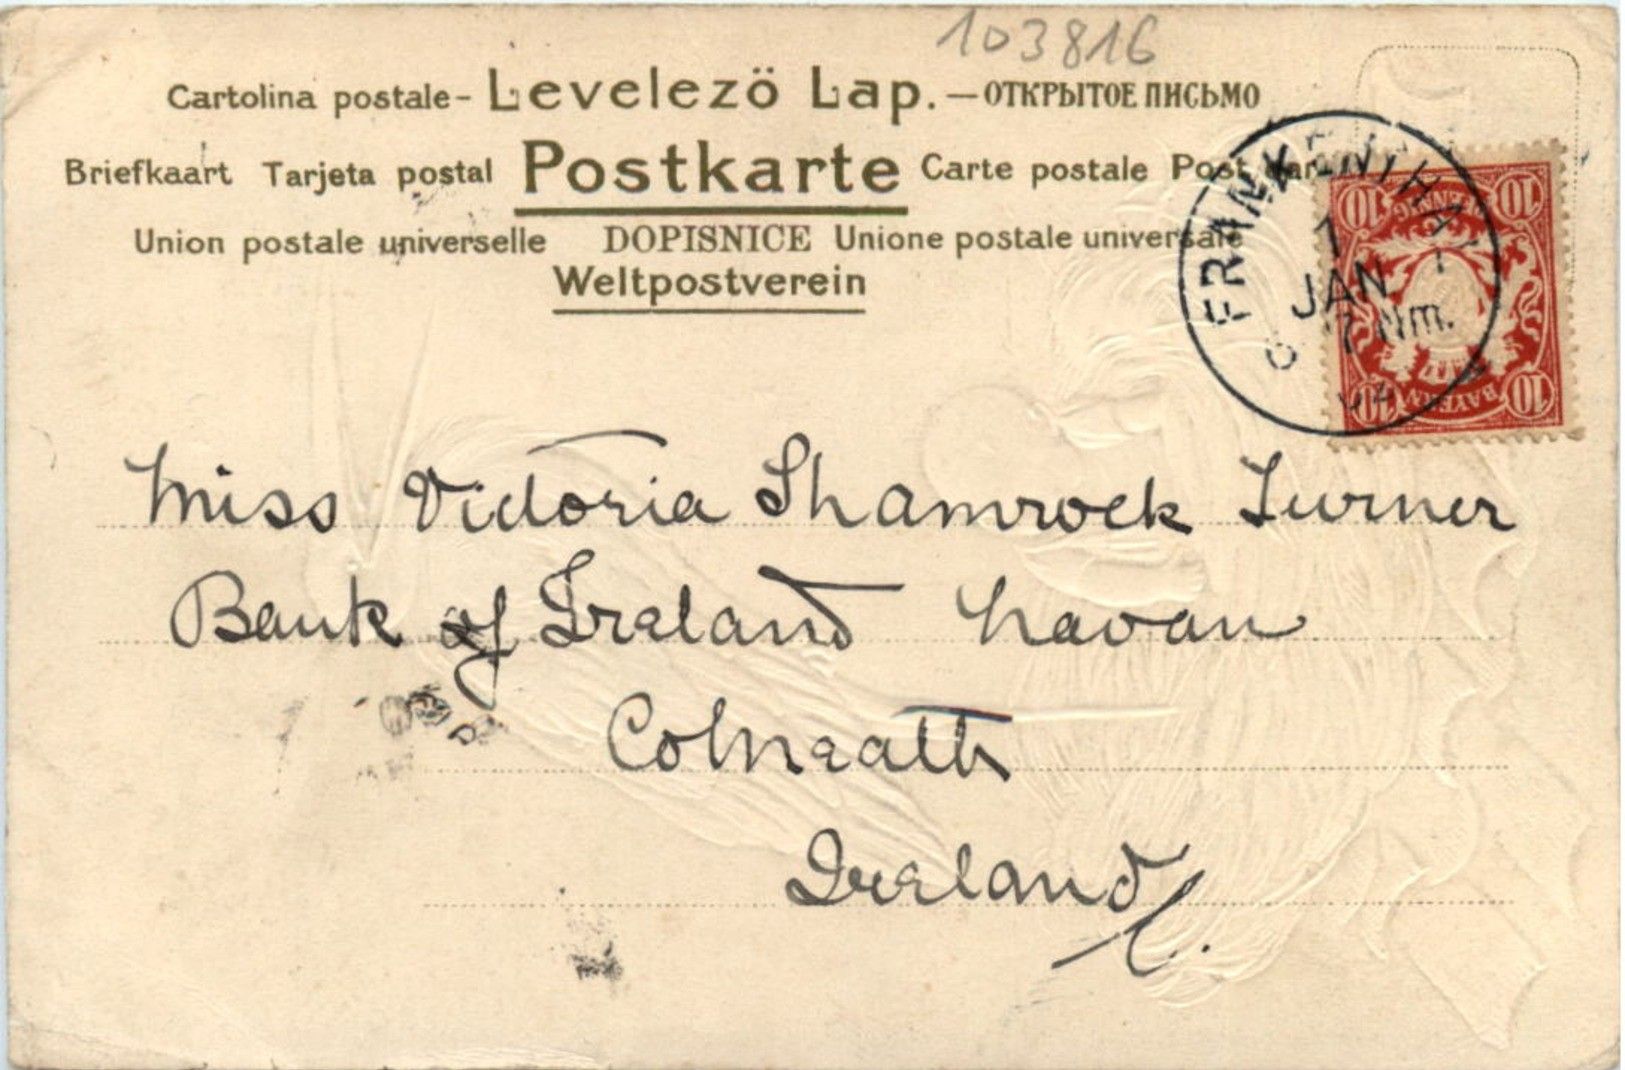 103816
Cartolina postale - Levelező Lap. — ОТКРЫТОЕ ПИСЬМО
Briefkaart Tarjeta postal Postkarte Carte postale Post
Union postale universelle DOPISNICE Unione postale universale
Weltpostverein
FRANKENTHAL
1
JAN
7 Nm.
10 10
BAYERN
10 10
Miss Victoria Shamrock Turner
Bank of Ireland Navan
Co Meath
Ireland